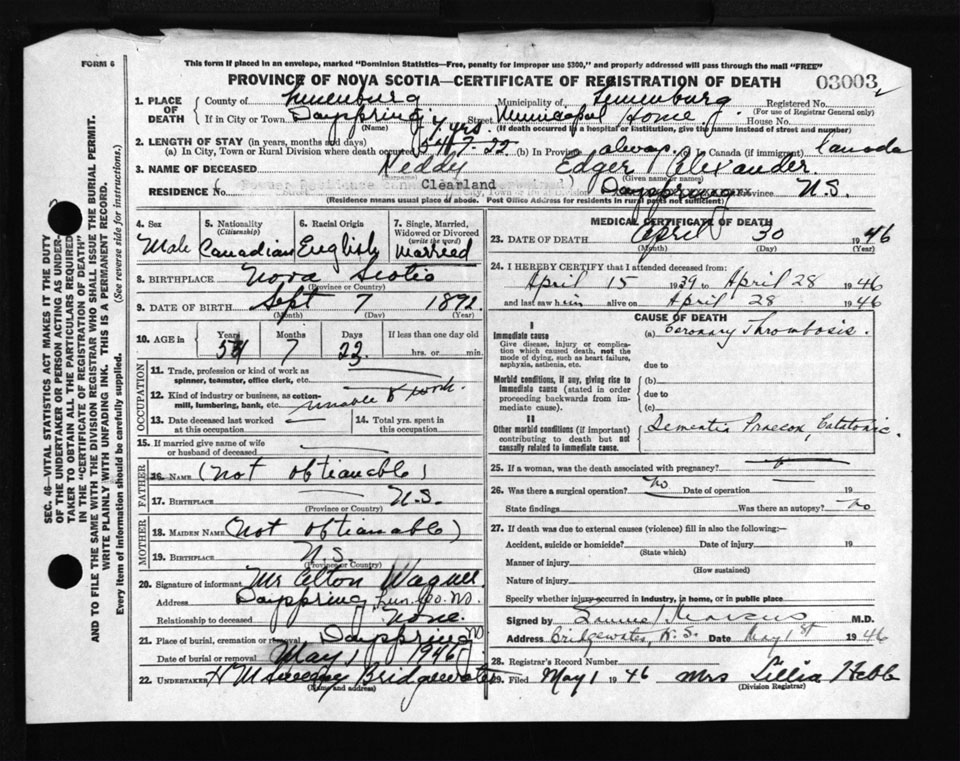 FORM 6
This form if placed in an envelope, marked "Dominion Statistics—Free, penalty for improper use $300," and properly addressed will pass through the mail "FREE"
PROVINCE OF NOVA SCOTIA—CERTIFICATE OF REGISTRATION OF DEATH
03003
SEC. 46—VITAL STATISTICS ACT MAKES IT THE DUTY
OF THE UNDERTAKER OR PERSON ACTING AS UNDER-
TAKER TO OBTAIN ALL THE PARTICULARS REQUIRED
IN THE "CERTIFICATE OF REGISTRATION OF DEATH"
AND TO FILE THE SAME WITH THE DIVISION REGISTRAR WHO SHALL ISSUE THE BURIAL PERMIT.
WRITE PLAINLY WITH UNFADING INK. THIS IS A PERMANENT RECORD.
Every item of information should be carefully supplied. (See reverse side for instructions.)
1. PLACE OF DEATH County of Lunenburg Municipality of Lunenburg Registered No.
(For use of Registrar General only)
If in City or Town Dayspring Street Municipal Home House No.
(Name) (If death occurred in a hospital or institution, give the name instead of street and number)
2. LENGTH OF STAY (in years, months and days)
(a) In City, Town or Rural Division where death occurred 7 yrs. 54-7-22 (b) In Province always (c) in Canada (if immigrant) Canada
3. NAME OF DECEASED Reddy Edger Alexander
(Surname) (Given name or names)
RESIDENCE Clearland Dayspring Province N.S.
(Residence means usual place of abode. Post Office Address for residents in rural parts not sufficient)
4. Sex Male
5. Nationality (Citizenship) Canadian
6. Racial Origin English
7. Single, Married, Widowed or Divorced (write the word) Married
8. BIRTHPLACE Nova Scotia
(Province or Country)
9. DATE OF BIRTH Sept 7 1892
(Month) (Day) (Year)
10. AGE in Years Months Days If less than one day old
7 22 hrs. or min.
OCCUPATION
11. Trade, profession or kind of work as spinner, teamster, office clerk, etc.
12. Kind of industry or business, as cotton-mill, lumbering, bank, etc. unable to work.
13. Date deceased last worked at this occupation
14. Total yrs. spent in this occupation
15. If married give name of wife or husband of deceased
FATHER
16. NAME (not obtianable)
17. BIRTHPLACE N.S.
(Province or Country)
MOTHER
18. MAIDEN NAME (not obtianable)
19. BIRTHPLACE N.S.
(Province or Country)
20. Signature of informant Mr Elton Wagner
Address Dayspring, Lun. Co. NS.
Relationship to deceased None.
21. Place of burial, cremation or removal Dayspring NS
Date of burial or removal May 1 1946
22. UNDERTAKER H M Sweeny Bridgewater
(Name and address)
MEDICAL CERTIFICATE OF DEATH
23. DATE OF DEATH April 30 1946
(Month) (Day) (Year)
24. I HEREBY CERTIFY that I attended deceased from:
April 15 1939 to April 28 1946
and last saw him alive on April 28 1946
CAUSE OF DEATH
I
Immediate cause (a) Coronary Thrombosis.
Give disease, injury or complication which caused death, not the mode of dying, such as heart failure, asphyxia, asthenia, etc.
due to
Morbid conditions, if any, giving rise to immediate cause (stated in order proceeding backwards from immediate cause).
(b)
due to
(c)
II
Other morbid conditions (if important) contributing to death but not causally related to immediate cause.
Dementia Praecox, Catatonic.
25. If a woman, was the death associated with pregnancy?
26. Was there a surgical operation? No Date of operation 19
State findings Was there an autopsy? No
27. If death was due to external causes (violence) fill in also the following:—
Accident, suicide or homicide? Date of injury 19
(State which)
Manner of injury
(How sustained)
Nature of injury
Specify whether injury occurred in industry, in home, or in public place
Signed by Samuel Marcus M.D.
Address Bridgewater, N.S. Date May 1st 1946
28. Registrar's Record Number
29. Filed May 1 1946 Mrs Lillia Hebb
(Division Registrar)